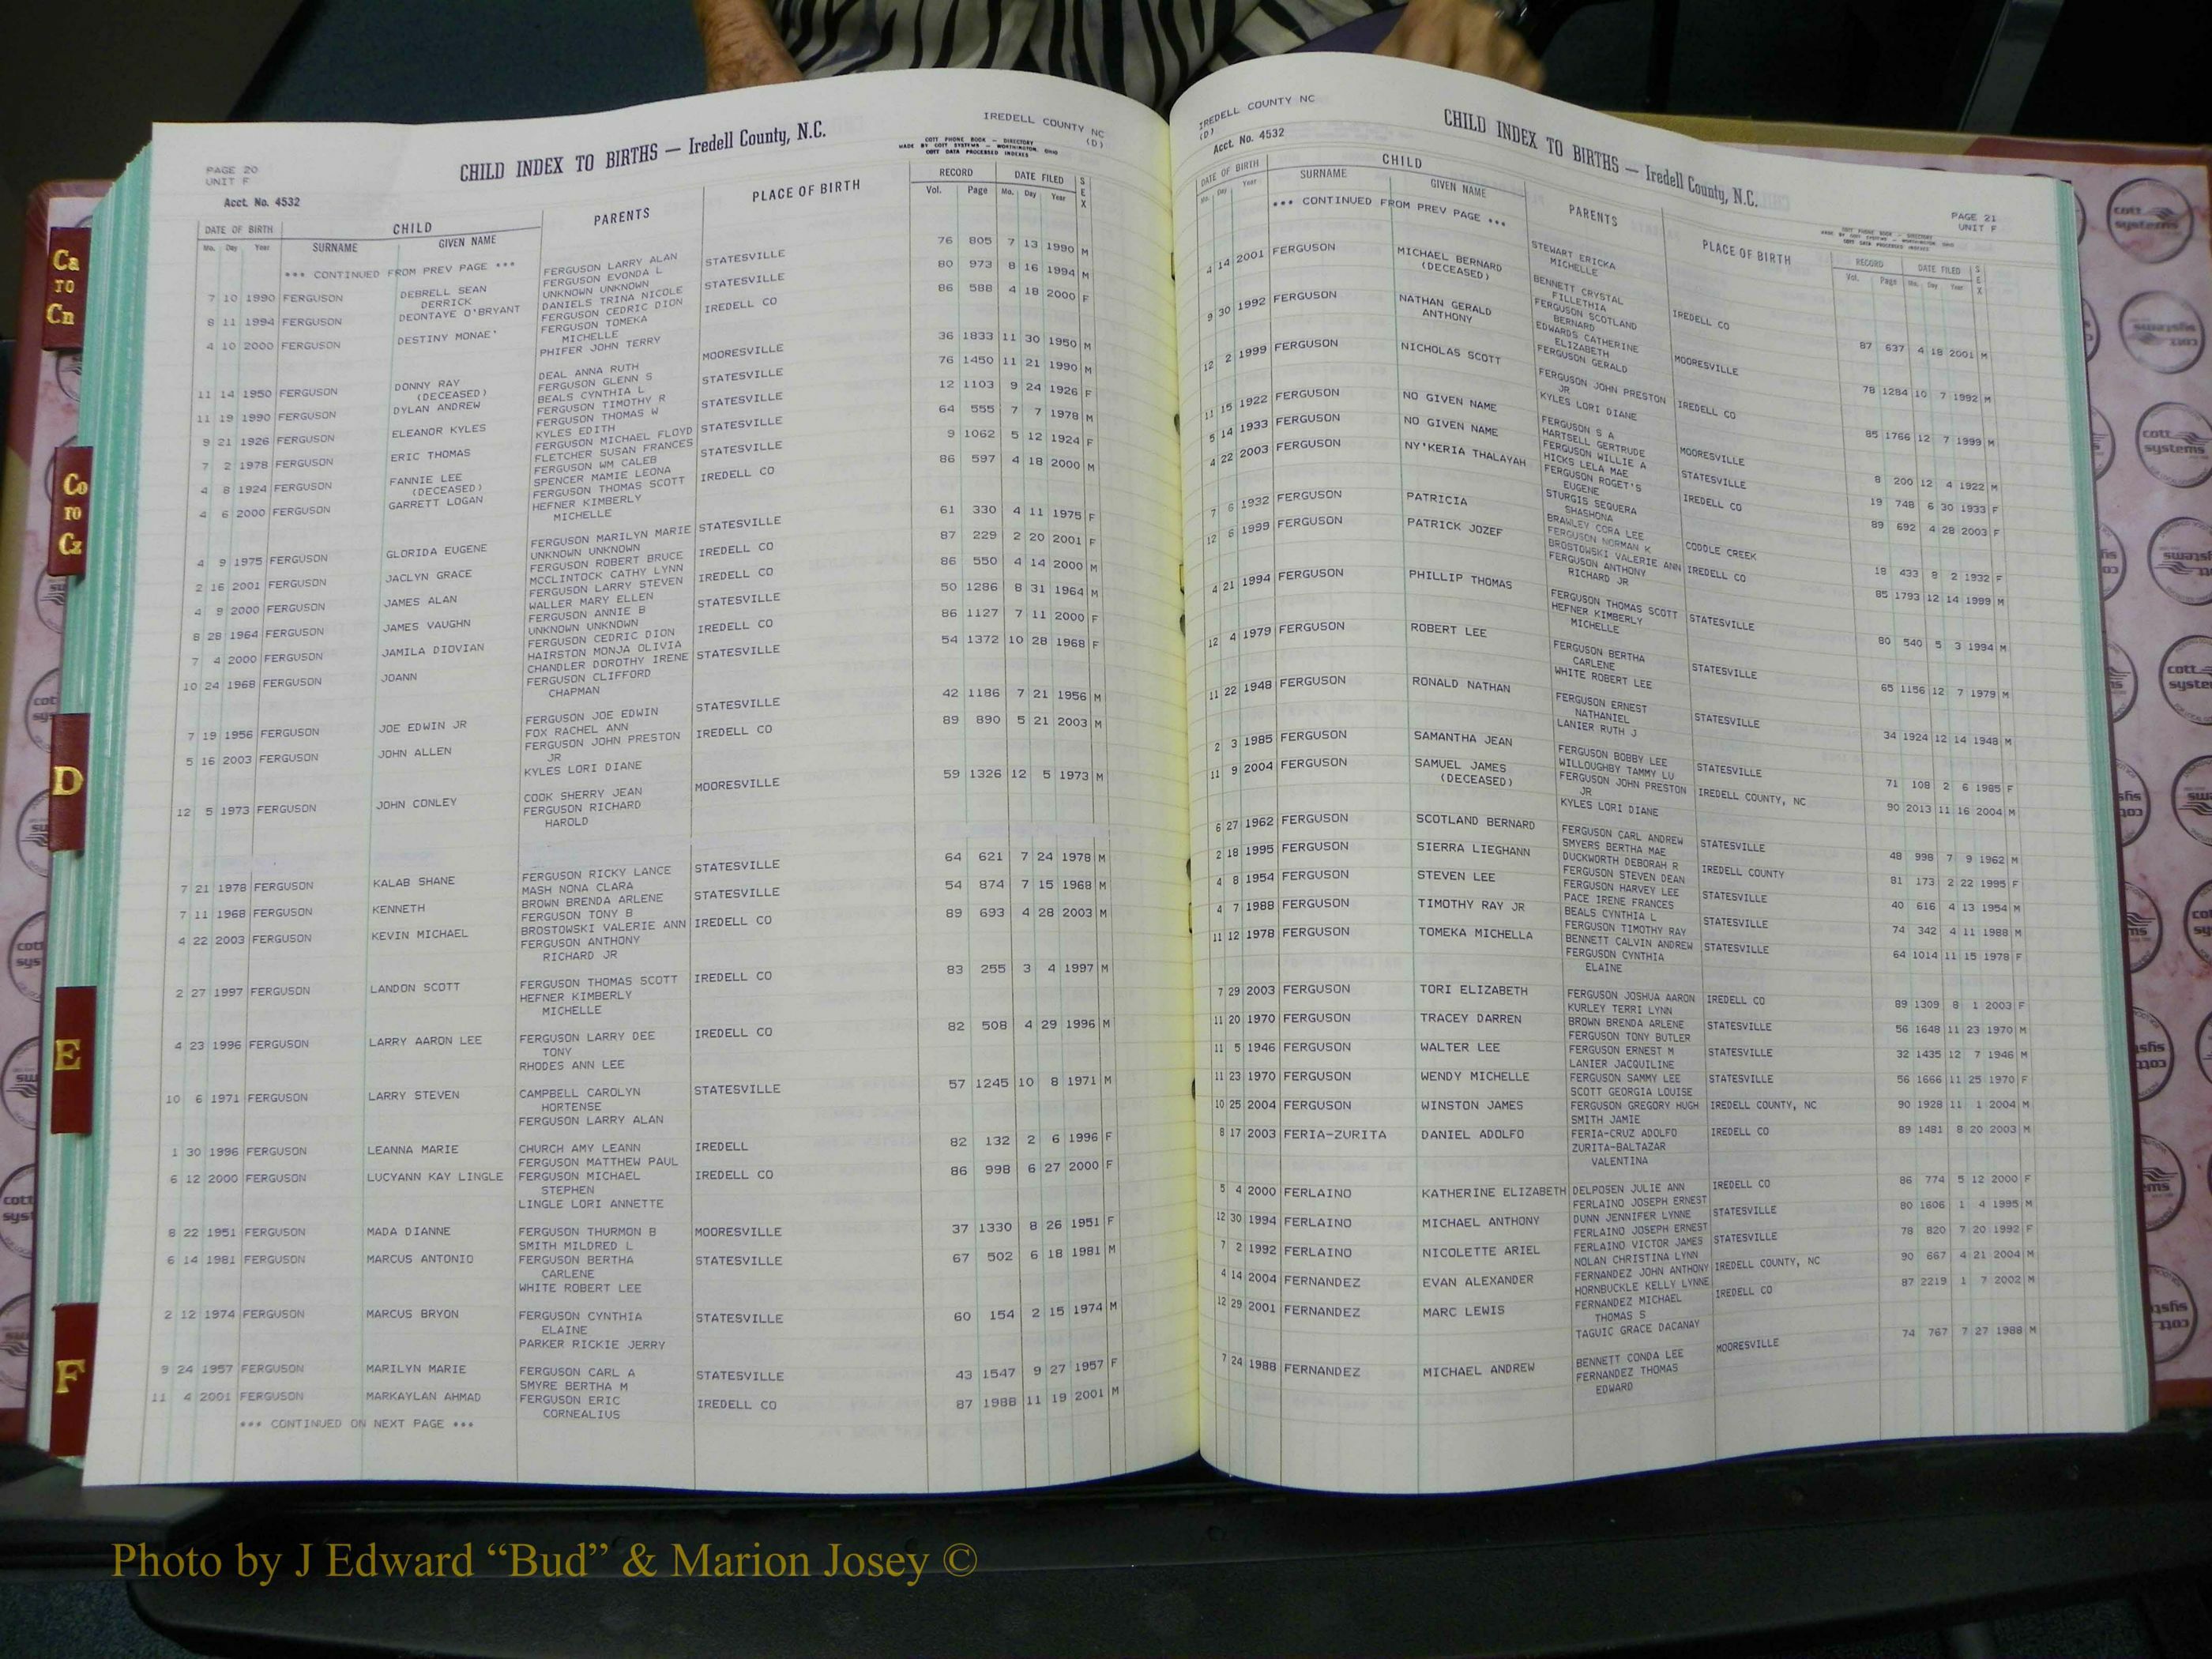 Ca
TO
Cn
Co
TO
Cz
D
E
F
PAGE 20
UNIT F
Acct. No. 4532
CHILD INDEX TO BIRTHS — Iredell County, N.C.
COTT PHONE BOOK — DIRECTORY
MADE BY COTT SYSTEMS — WORTHINGTON, OHIO
COTT DATA PROCESSED INDEXES
IREDELL COUNTY NC
(D)
DATE OF BIRTH CHILD PARENTS PLACE OF BIRTH RECORD DATE FILED SEX
Mo. Day Year SURNAME GIVEN NAME Vol. Page Mo. Day Year
*** CONTINUED FROM PREV PAGE ***
7 10 1990 FERGUSON DEBRELL SEAN FERGUSON LARRY ALAN STATESVILLE 76 805 7 13 1990 M
FERGUSON EVONDA L
8 11 1994 FERGUSON DERRICK UNKNOWN UNKNOWN STATESVILLE 80 973 8 16 1994 M
DEONTAYE O'BRYANT DANIELS TRINA NICOLE
4 10 2000 FERGUSON DESTINY MONAE' FERGUSON CEDRIC DION IREDELL CO 86 588 4 18 2000 F
FERGUSON TOMEKA
MICHELLE
PHIFER JOHN TERRY
11 14 1950 FERGUSON DONNY RAY DEAL ANNA RUTH MOORESVILLE 36 1833 11 30 1950 M
(DECEASED) FERGUSON GLENN S
11 19 1990 FERGUSON DYLAN ANDREW BEALS CYNTHIA L STATESVILLE 76 1450 11 21 1990 M
FERGUSON TIMOTHY R
9 21 1926 FERGUSON ELEANOR KYLES FERGUSON THOMAS W STATESVILLE 12 1103 9 24 1926 F
KYLES EDITH
7 2 1978 FERGUSON ERIC THOMAS FERGUSON MICHAEL FLOYD STATESVILLE 64 555 7 7 1978 M
FLETCHER SUSAN FRANCES
4 8 1924 FERGUSON FANNIE LEE FERGUSON WM CALEB STATESVILLE 9 1062 5 12 1924 F
(DECEASED) SPENCER MAMIE LEONA
4 6 2000 FERGUSON GARRETT LOGAN FERGUSON THOMAS SCOTT IREDELL CO 86 597 4 18 2000 M
HEFNER KIMBERLY
MICHELLE
4 9 1975 FERGUSON GLORIDA EUGENE FERGUSON MARILYN MARIE STATESVILLE 61 330 4 11 1975 F
UNKNOWN UNKNOWN
2 16 2001 FERGUSON JACLYN GRACE FERGUSON ROBERT BRUCE IREDELL CO 87 229 2 20 2001 F
MCCLINTOCK CATHY LYNN
4 9 2000 FERGUSON JAMES ALAN FERGUSON LARRY STEVEN IREDELL CO 86 550 4 14 2000 M
WALLER MARY ELLEN
8 28 1964 FERGUSON JAMES VAUGHN FERGUSON ANNIE B STATESVILLE 50 1286 8 31 1964 M
UNKNOWN UNKNOWN
7 4 2000 FERGUSON JAMILA DIOVIAN FERGUSON CEDRIC DION IREDELL CO 86 1127 7 11 2000 F
HAIRSTON MONJA OLIVIA
10 24 1968 FERGUSON JOANN CHANDLER DOROTHY IRENE STATESVILLE 54 1372 10 28 1968 F
FERGUSON CLIFFORD
CHAPMAN
7 19 1956 FERGUSON JOE EDWIN JR FERGUSON JOE EDWIN STATESVILLE 42 1186 7 21 1956 M
FOX RACHEL ANN
5 16 2003 FERGUSON JOHN ALLEN FERGUSON JOHN PRESTON IREDELL CO 89 890 5 21 2003 M
JR
KYLES LORI DIANE
12 5 1973 FERGUSON JOHN CONLEY COOK SHERRY JEAN MOORESVILLE 59 1326 12 5 1973 M
FERGUSON RICHARD
HAROLD
7 21 1978 FERGUSON KALAB SHANE FERGUSON RICKY LANCE STATESVILLE 64 621 7 24 1978 M
MASH NONA CLARA
7 11 1968 FERGUSON KENNETH BROWN BRENDA ARLENE STATESVILLE 54 874 7 15 1968 M
FERGUSON TONY B
4 22 2003 FERGUSON KEVIN MICHAEL BROSTOWSKI VALERIE ANN IREDELL CO 89 693 4 28 2003 M
FERGUSON ANTHONY
RICHARD JR
2 27 1997 FERGUSON LANDON SCOTT FERGUSON THOMAS SCOTT IREDELL CO 83 255 3 4 1997 M
HEFNER KIMBERLY
MICHELLE
4 23 1996 FERGUSON LARRY AARON LEE FERGUSON LARRY DEE IREDELL CO 82 508 4 29 1996 M
TONY
RHODES ANN LEE
10 6 1971 FERGUSON LARRY STEVEN CAMPBELL CAROLYN STATESVILLE 57 1245 10 8 1971 M
HORTENSE
FERGUSON LARRY ALAN
1 30 1996 FERGUSON LEANNA MARIE CHURCH AMY LEANN IREDELL 82 132 2 6 1996 F
FERGUSON MATTHEW PAUL
6 12 2000 FERGUSON LUCYANN KAY LINGLE FERGUSON MICHAEL IREDELL CO 86 998 6 27 2000 F
STEPHEN
LINGLE LORI ANNETTE
8 22 1951 FERGUSON MADA DIANNE FERGUSON THURMON B MOORESVILLE 37 1330 8 26 1951 F
SMITH MILDRED L
6 14 1981 FERGUSON MARCUS ANTONIO FERGUSON BERTHA STATESVILLE 67 502 6 18 1981 M
CARLENE
WHITE ROBERT LEE
2 12 1974 FERGUSON MARCUS BRYON FERGUSON CYNTHIA STATESVILLE 60 154 2 15 1974 M
ELAINE
PARKER RICKIE JERRY
9 24 1957 FERGUSON MARILYN MARIE FERGUSON CARL A STATESVILLE 43 1547 9 27 1957 F
SMYRE BERTHA M
11 4 2001 FERGUSON MARKAYLAN AHMAD FERGUSON ERIC IREDELL CO 87 1988 11 19 2001 M
CORNEALIUS
*** CONTINUED ON NEXT PAGE ***
IREDELL COUNTY NC
(D)
Acct. No. 4532
CHILD INDEX TO BIRTHS — Iredell County, N.C.
PAGE 21
UNIT F
COTT PHONE BOOK — DIRECTORY
MADE BY COTT SYSTEMS — WORTHINGTON, OHIO
COTT DATA PROCESSED INDEXES
DATE OF BIRTH CHILD PARENTS PLACE OF BIRTH RECORD DATE FILED SEX
Mo. Day Year SURNAME GIVEN NAME Vol. Page Mo. Day Year
*** CONTINUED FROM PREV PAGE ***
4 14 2001 FERGUSON MICHAEL BERNARD STEWART ERICKA IREDELL CO 87 637 4 18 2001 M
(DECEASED) MICHELLE
BENNETT CRYSTAL
FILLETHIA
FERGUSON SCOTLAND
BERNARD
9 30 1992 FERGUSON NATHAN GERALD EDWARDS CATHERINE MOORESVILLE 78 1284 10 7 1992 M
ANTHONY ELIZABETH
FERGUSON GERALD
12 2 1999 FERGUSON NICHOLAS SCOTT FERGUSON JOHN PRESTON IREDELL CO 85 1766 12 7 1999 M
JR
KYLES LORI DIANE
11 15 1922 FERGUSON NO GIVEN NAME FERGUSON S A MOORESVILLE 8 200 12 4 1922 M
HARTSELL GERTRUDE
5 14 1933 FERGUSON NO GIVEN NAME FERGUSON WILLIE A STATESVILLE 19 748 6 30 1933 F
HICKS LELA MAE
4 22 2003 FERGUSON NY'KERIA THALAYAH FERGUSON ROGET'S IREDELL CO 89 692 4 28 2003 F
EUGENE
STURGIS SEQUERA
SHASHONA
7 6 1932 FERGUSON PATRICIA BRAWLEY CORA LEE CODDLE CREEK 18 433 8 2 1932 F
FERGUSON NORMAN K
12 6 1999 FERGUSON PATRICK JOZEF BROSTOWSKI VALERIE ANN IREDELL CO 85 1793 12 14 1999 M
FERGUSON ANTHONY
RICHARD JR
4 21 1994 FERGUSON PHILLIP THOMAS FERGUSON THOMAS SCOTT STATESVILLE 80 540 5 3 1994 M
HEFNER KIMBERLY
MICHELLE
12 4 1979 FERGUSON ROBERT LEE FERGUSON BERTHA STATESVILLE 65 1156 12 7 1979 M
CARLENE
WHITE ROBERT LEE
11 22 1948 FERGUSON RONALD NATHAN FERGUSON ERNEST STATESVILLE 34 1924 12 14 1948 M
NATHANIEL
LANIER RUTH J
2 3 1985 FERGUSON SAMANTHA JEAN FERGUSON BOBBY LEE STATESVILLE 71 108 2 6 1985 F
WILLOUGHBY TAMMY LU
11 9 2004 FERGUSON SAMUEL JAMES FERGUSON JOHN PRESTON IREDELL COUNTY, NC 90 2013 11 16 2004 M
(DECEASED) JR
KYLES LORI DIANE
6 27 1962 FERGUSON SCOTLAND BERNARD FERGUSON CARL ANDREW STATESVILLE 48 998 7 9 1962 M
SMYERS BERTHA MAE
2 18 1995 FERGUSON SIERRA LIEGHANN DUCKWORTH DEBORAH R IREDELL COUNTY 81 173 2 22 1995 F
FERGUSON STEVEN DEAN
4 8 1954 FERGUSON STEVEN LEE FERGUSON HARVEY LEE STATESVILLE 40 616 4 13 1954 M
PACE IRENE FRANCES
4 7 1988 FERGUSON TIMOTHY RAY JR BEALS CYNTHIA L STATESVILLE 74 342 4 11 1988 M
FERGUSON TIMOTHY RAY
11 12 1978 FERGUSON TOMEKA MICHELLA BENNETT CALVIN ANDREW STATESVILLE 64 1014 11 15 1978 F
FERGUSON CYNTHIA
ELAINE
7 29 2003 FERGUSON TORI ELIZABETH FERGUSON JOSHUA AARON IREDELL CO 89 1309 8 1 2003 F
KURLEY TERRI LYNN
11 20 1970 FERGUSON TRACEY DARREN BROWN BRENDA ARLENE STATESVILLE 56 1648 11 23 1970 M
FERGUSON TONY BUTLER
11 5 1946 FERGUSON WALTER LEE FERGUSON ERNEST M STATESVILLE 32 1435 12 7 1946 M
LANIER JACQUILINE
11 23 1970 FERGUSON WENDY MICHELLE FERGUSON SAMMY LEE STATESVILLE 56 1666 11 25 1970 F
SCOTT GEORGIA LOUISE
10 25 2004 FERGUSON WINSTON JAMES FERGUSON GREGORY HUGH IREDELL COUNTY, NC 90 1928 11 1 2004 M
SMITH JAMIE
8 17 2003 FERIA-ZURITA DANIEL ADOLFO FERIA-CRUZ ADOLFO IREDELL CO 89 1481 8 20 2003 M
ZURITA-BALTAZAR
VALENTINA
5 4 2000 FERLAINO KATHERINE ELIZABETH DELPOSEN JULIE ANN IREDELL CO 86 774 5 12 2000 F
FERLAINO JOSEPH ERNEST
12 30 1994 FERLAINO MICHAEL ANTHONY DUNN JENNIFER LYNNE STATESVILLE 80 1606 1 4 1995 M
FERLAINO JOSEPH ERNEST
7 2 1992 FERLAINO NICOLETTE ARIEL FERLAINO VICTOR JAMES STATESVILLE 78 820 7 20 1992 F
NOLAN CHRISTINA LYNN
4 14 2004 FERNANDEZ EVAN ALEXANDER FERNANDEZ JOHN ANTHONY IREDELL COUNTY, NC 90 667 4 21 2004 M
HORNBUCKLE KELLY LYNNE
12 29 2001 FERNANDEZ MARC LEWIS FERNANDEZ MICHAEL IREDELL CO 87 2219 1 7 2002 M
THOMAS S
TAGUIC GRACE DACANAY
7 24 1988 FERNANDEZ MICHAEL ANDREW BENNETT CONDA LEE MOORESVILLE 74 767 7 27 1988 M
FERNANDEZ THOMAS
EDWARD
cott
systems
Photo by J Edward “Bud” & Marion Josey ©